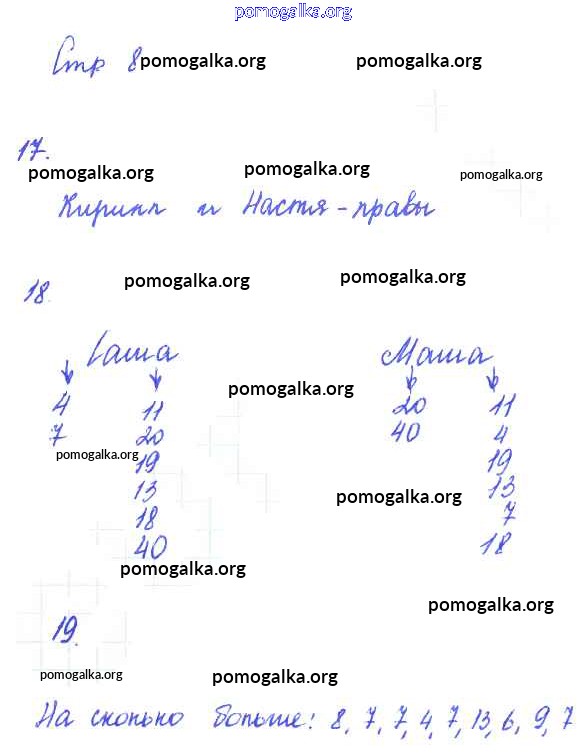 pomogalka.org
Стр 8 pomogalka.org pomogalka.org
17.
pomogalka.org pomogalka.org pomogalka.org
Кирилл и Настя - правы
pomogalka.org pomogalka.org
18.
Саша Маша
pomogalka.org
4 11 20 11
7 20 40 4
pomogalka.org
19 19
13 13
pomogalka.org
18 7
40 18
pomogalka.org
pomogalka.org
19.
pomogalka.org pomogalka.org
На сколько больше: 8, 7, 7, 4, 7, 13, 6, 9, 7